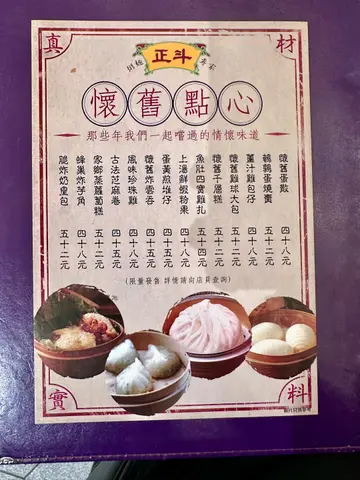 真
材
正斗
懷舊點心
那些年我們一起嚐過的情懷味道
懷舊蛋散 四十八元
鵪鶉蛋燒賣 五十二元
薑汁雞包仔 四十八元
懷舊雞球大包 五十二元
懷舊千層糕 四十八元
魚肚四寶雞扎 五十四元
上湯鮮蝦粉果 五十五元
蛋黃煎堆仔 四十五元
懷舊炸雲吞
風味珍珠雞 四十八元
古法芝麻卷 四十八元
家鄉蒸蘿蔔糕 五十二元
蜂巢炸芋角 四十八元
脆炸奶皇包 五十二元
(限量發售 詳情請向店員查詢)
實
料